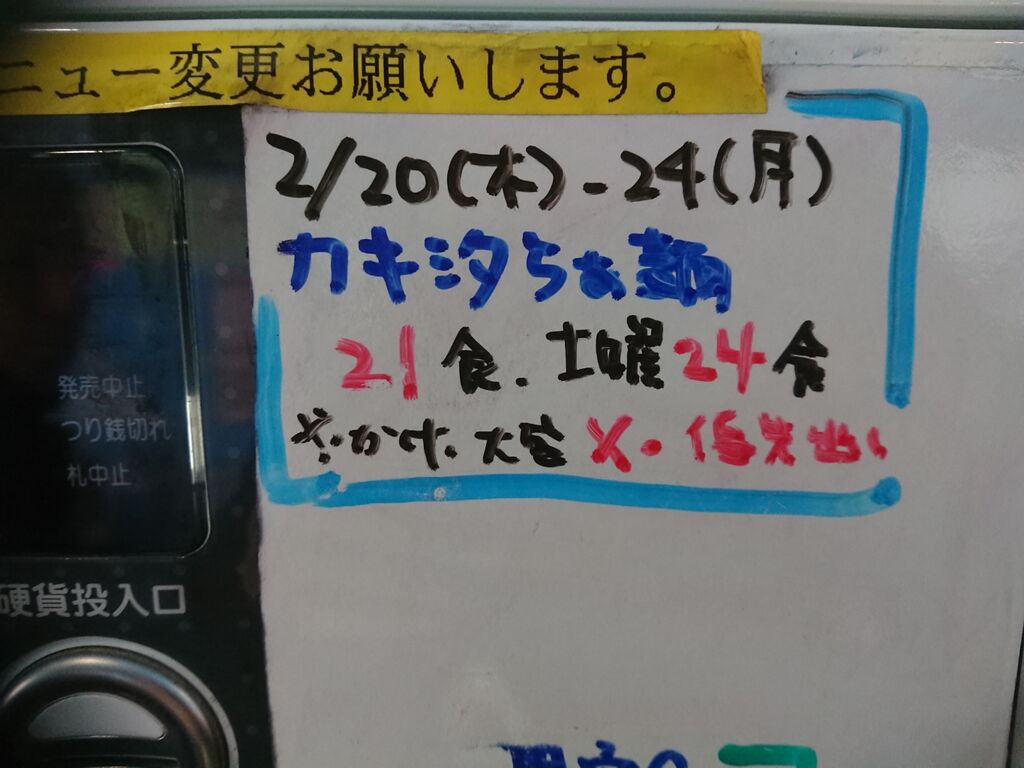 ニュー変更お願いします。
2/20(木)-24(月)
カキ汐らぁ麺
21食.土曜24食
※.かけ.大盛X.
発売中止
つり銭切れ
札中止
硬貨投入口